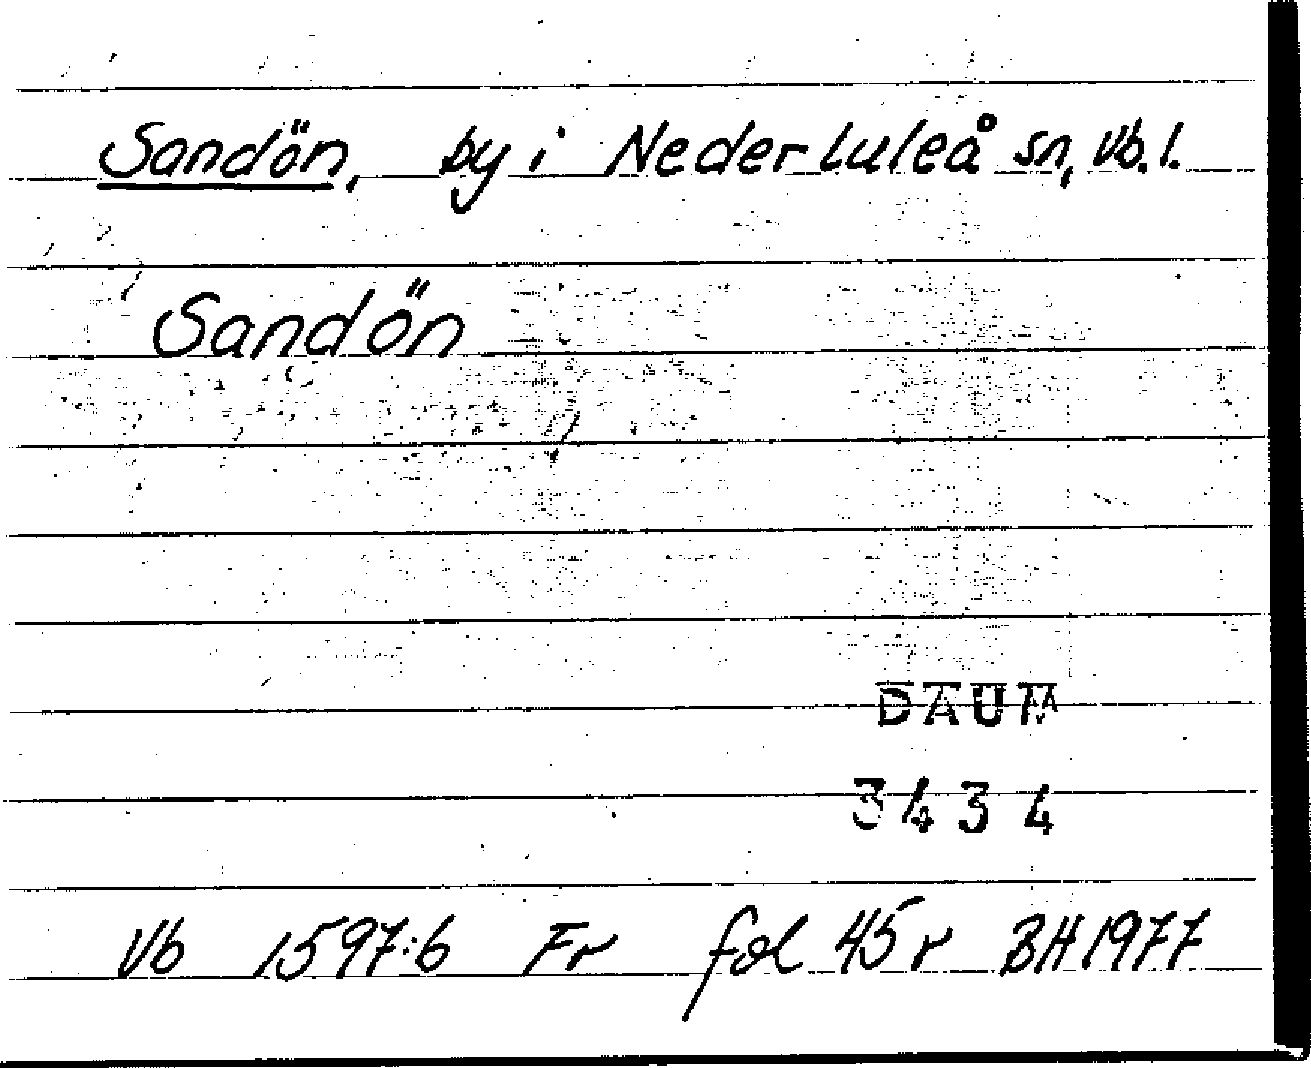 Sandön, by i Nederluleå sn, Vb.l.
Sandön
DAUM
3434
Vb 1597:6 Fr fol 45 r BH 1977